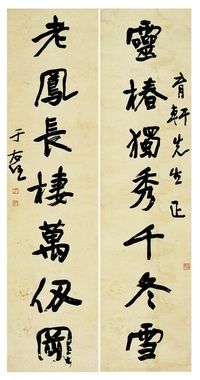 育軒先生正
靈椿獨秀千冬雪
老鳳長棲萬仞岡
于右任